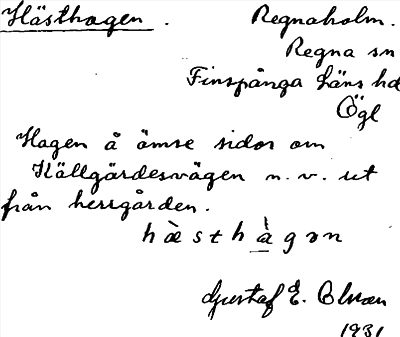 Hästhagen . Regnaholm.
Regna sn
Finspånga läns hd
Ögl
Hagen å ömse sidor om
Källgärdesvägen n. v. ut
från herrgården.
hæ̀sthàgɘn
Gustaf E. Olsson
1931